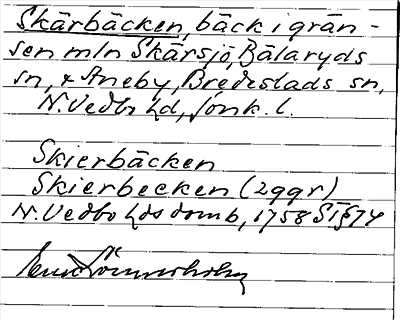 Skärbäcken, bäck i grän-
sen mln Skärsjö, Bälaryds
sn, & Aneby, Bredestads sn,
N. Vedbo hd, Jönk. l.
Skierbäcken
Skierbecken (2ggr)
N. Vedbo hds domb, 1758 ST §74